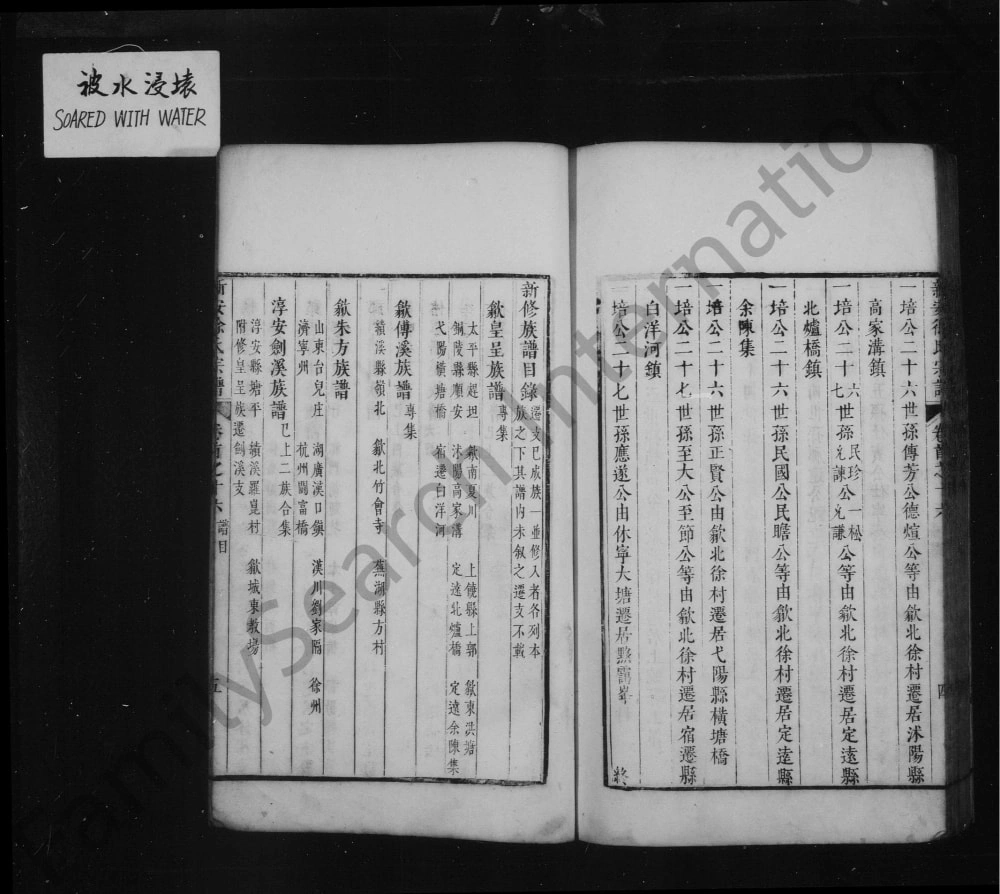 被水浸壊
SOARED WITH WATER
一培公二十六世孫傳芳公德煊公等由歙北徐村遷居沭陽縣
高家溝鎮
一培公二十六七世孫民珍公一松允諫公允謙公等由歙北徐村遷居定遠縣
北爐橋鎮
一培公二十六世孫民國公民瞻公等由歙北徐村遷居定遠縣
余陳集
一培公二十六世孫正賢公由歙北徐村遷居弋陽縣橫塘橋
一培公二十七世孫至大公至節公等由歙北徐村遷居宿遷縣
白洋河鎮
一培公二十七世孫應遂公由休寧大塘遷居黟
終
新修族譜目錄 遷支已成族一並修入者各列本
族之下其譜內未叙之遷支不載
歙皇呈族譜 專集
太平縣起坦 歙南夏川 上饒縣上郭 歙東洪塘
銅陵縣順安 沭陽高家溝 定遠北爐橋 定遠余陳集
弋陽橫塘橋 宿遷白洋河
歙傅溪族譜 專集
績溪縣嶺北 歙北竹會寺 蕪湖縣方村
歙朱方族譜
山東台兒庄 湖廣漢口鎮 漢川劉家隔 徐州
濟寧州 杭州關富橋
淳安劍溪族譜 已上二族合集
淳安縣塘平 績溪羅崑村 歙城東教場
附修皇呈族遷劍溪支
新安徐氏宗譜 卷首之十六 譜目 五
FamilySearch International